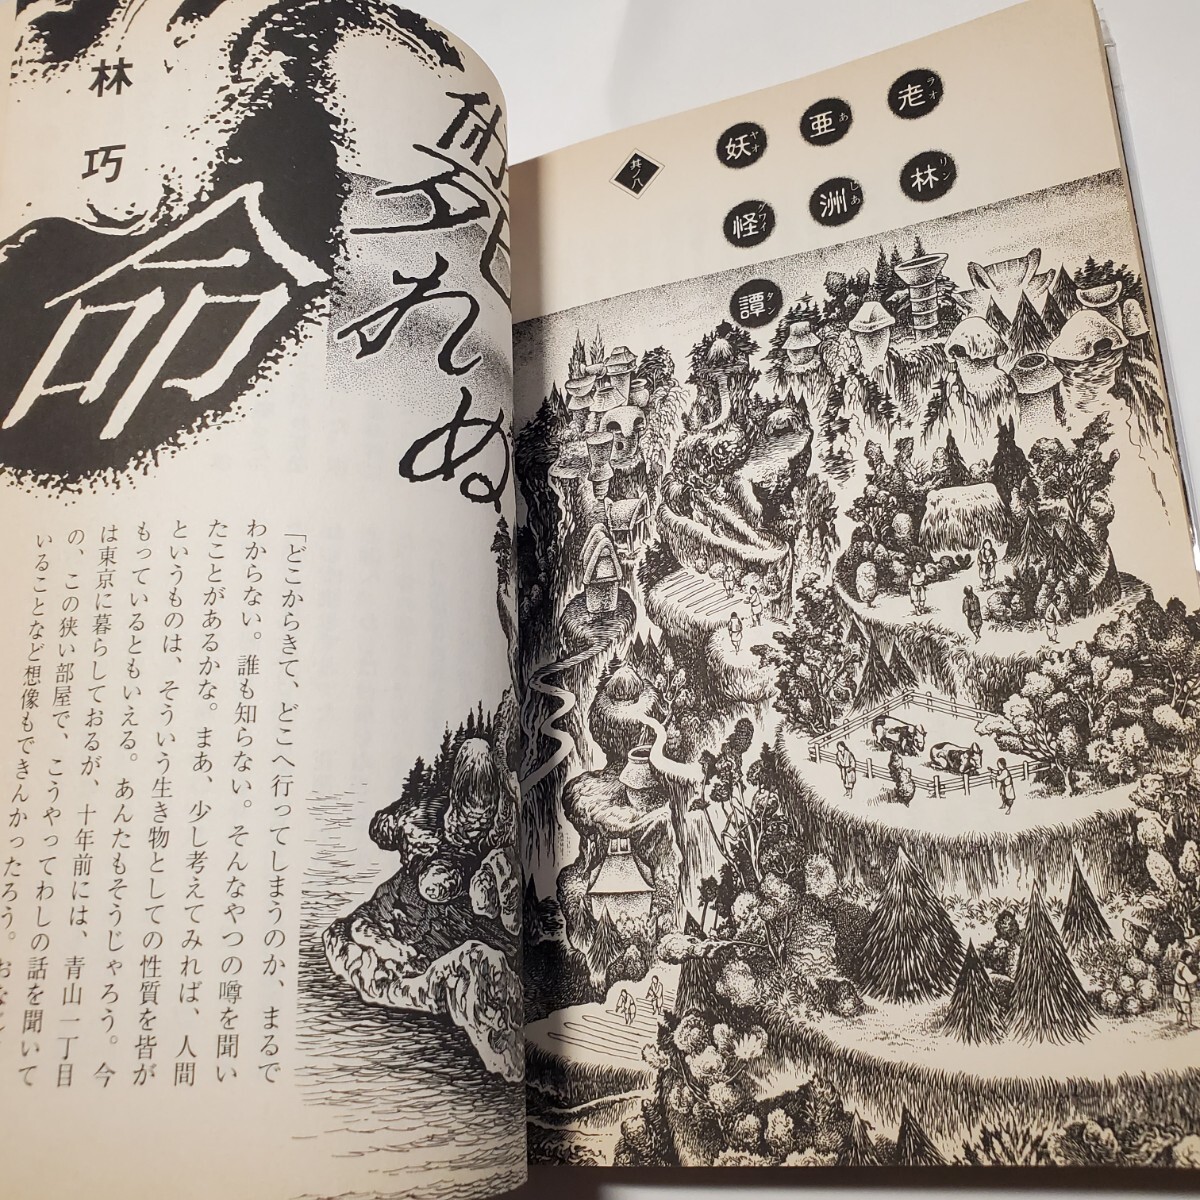 老林
ラオリン
亜洲
あじあ
妖怪譚
ヤオグワイ
其ノ八
れぬ
命
林巧
「どこからきて、どこへ行ってしまうのか、まるで
わからない。誰も知らない。そんなやつの噂を聞い
たことがあるかな。まあ、少し考えてみれば、人間
というものは、そういう生き物としての性質を皆が
もっているともいえる。あんたもそうじゃろう。今
は東京に暮らしておるが、十年前には、青山一丁目
の、この狭い部屋で、こうやってわしの話を聞いて
いることなど想像もできんかったろう。